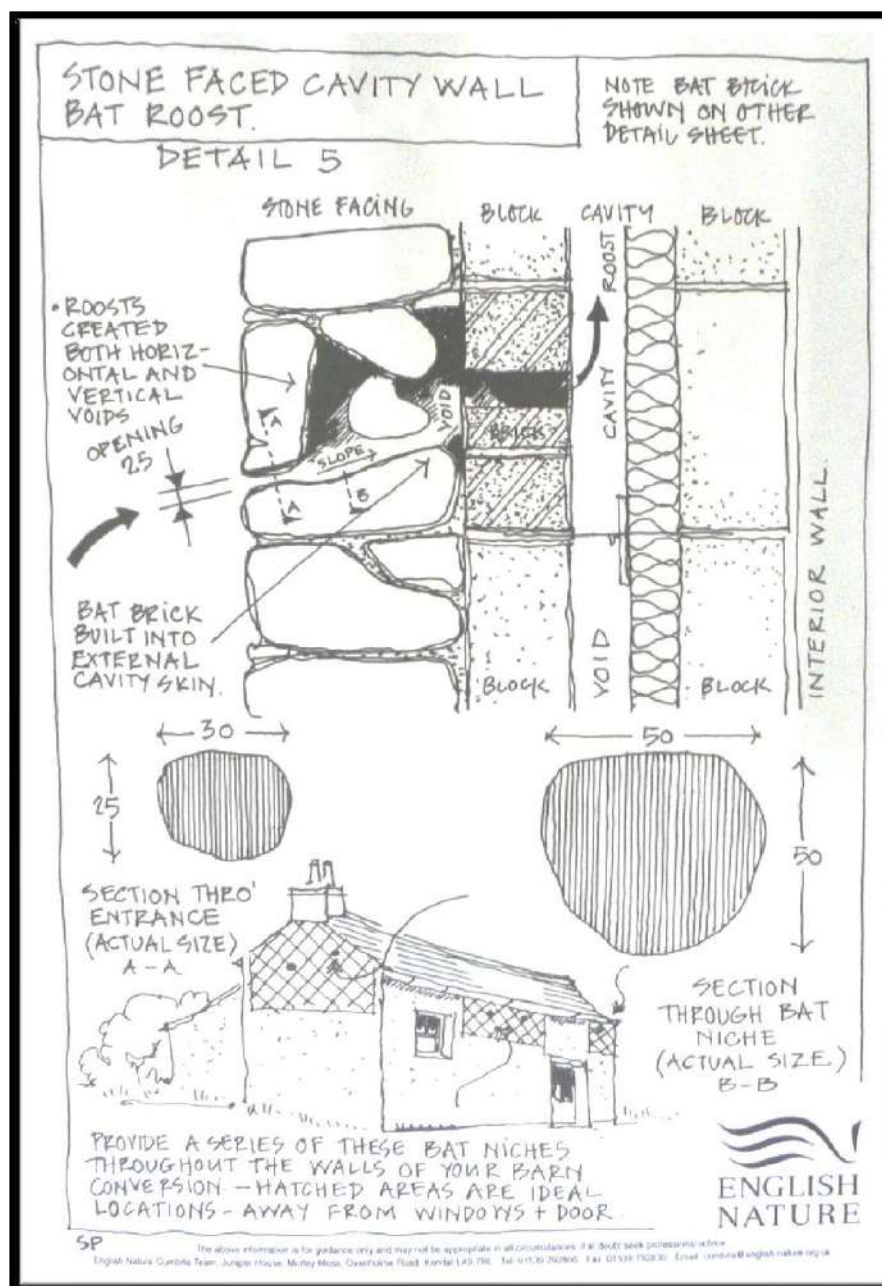 STONE FACED CAVITY WALL
BAT ROOST.
DETAIL 5
NOTE BAT BRICK
SHOWN ON OTHER
DETAIL SHEET.
STONE FACING
BLOCK
CAVITY
BLOCK
• ROOSTS
CREATED
BOTH HORIZ-
ONTAL AND
VERTICAL
VOIDS
OPENING
25
A
A
SLOPE
B
VOID
BRICK
ROOST
CAVITY
VOID
BLOCK
BLOCK
INTERIOR WALL.
BAT BRICK
BUILT INTO
EXTERNAL
CAVITY SKIN.
30
25
SECTION THRO'
ENTRANCE
(ACTUAL SIZE)
A-A
50
50
SECTION
THROUGH BAT
NICHE
(ACTUAL SIZE)
B-B
PROVIDE A SERIES OF THESE BAT NICHES
THROUGHOUT THE WALLS OF YOUR BARN
CONVERSION - HATCHED AREAS ARE IDEAL
LOCATIONS - AWAY FROM WINDOWS + DOOR.
ENGLISH
NATURE
SP
The above information is for guidance only and may not be appropriate in all circumstances. If in doubt seek professional advice
English Nature Cumbria Team, Juniper House, Murley Moss, Oxenholme Road, Kendal LA9 7RL Tel: 01539 792800 Fax: 01539 792830 Email: cumbria@english-nature.org.uk